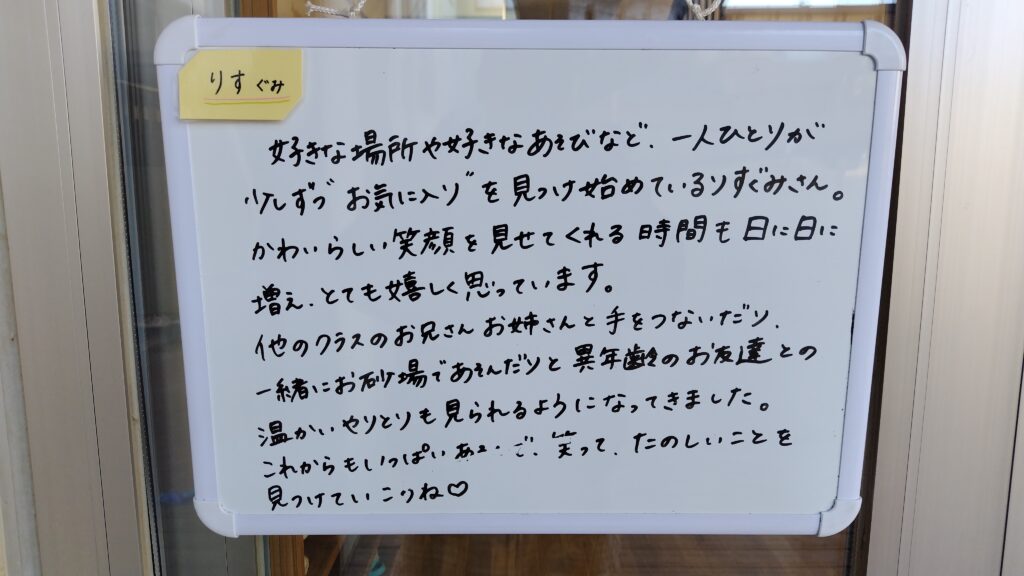 りすぐみ
好きな場所や好きなあそびなど、一人ひとりが
少しずつ"お気に入り"を見つけ始めているりすぐみさん。
かわいらしい笑顔を見せてくれる時間も日に日に
増え、とても嬉しく思っています。
他のクラスのお兄さんお姉さんと手をつないだり、
一緒にお砂場であそんだりと異年齢のお友達との
温かいやりとりも見られるようになってきました。
これからもいっぱい 笑って、たのしいことを
見つけていこうね♡